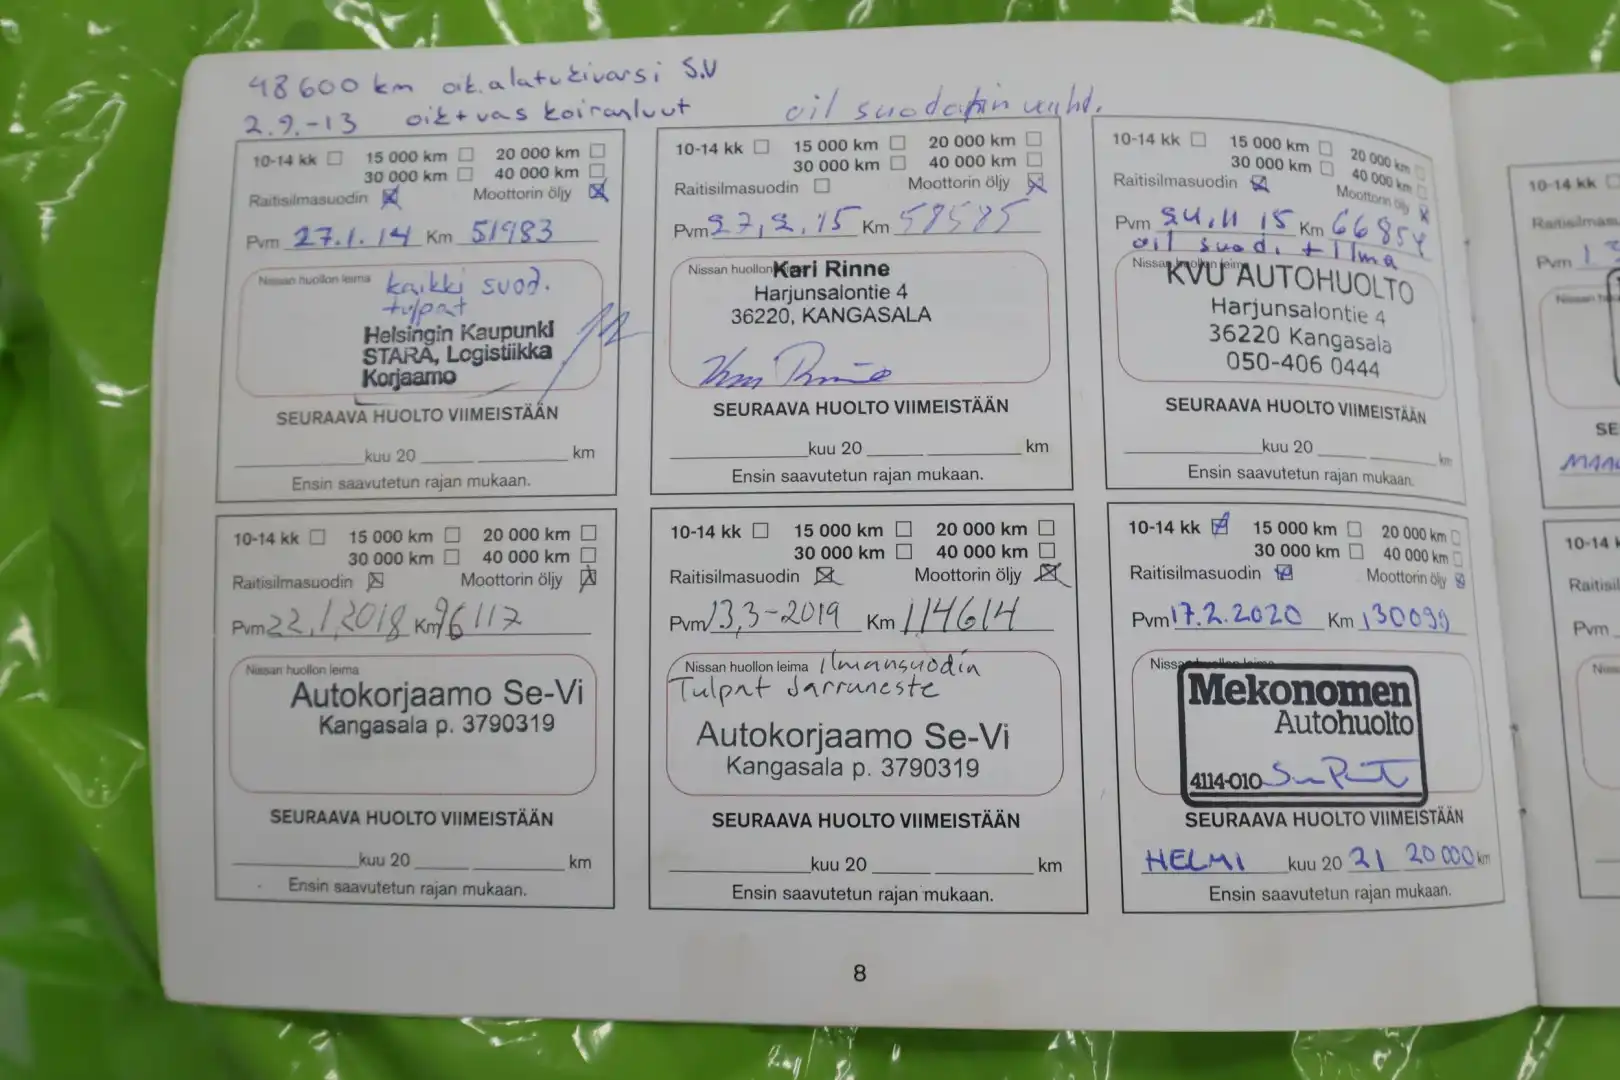 48600 km oik.alatukivarsi S.V
2.9.-13 oik+vas koiranluut
oil suodatin vaihd.
10-14 kk 15 000 km 20 000 km
30 000 km 40 000 km
Raitisilmasuodin Moottorin öljy
Pvm 27.1.14 Km 51983
Nissan huollon leima kaikki suod.
tulpat
Helsingin Kaupunki
STARA, Logistiikka
Korjaamo
SEURAAVA HUOLTO VIIMEISTÄÄN
kuu 20 km
Ensin saavutetun rajan mukaan.
10-14 kk 15 000 km 20 000 km
30 000 km 40 000 km
Raitisilmasuodin Moottorin öljy
Pvm 27,2,15 Km 58585
Nissan huollon Kari Rinne
Harjunsalontie 4
36220, KANGASALA
SEURAAVA HUOLTO VIIMEISTÄÄN
kuu 20 km
Ensin saavutetun rajan mukaan.
10-14 kk 15 000 km 20 000 km
30 000 km 40 000 km
Raitisilmasuodin Moottorin öljy
Pvm 24.11 15 Km 66854
oil suod. + Ilma
Nissan huollon leima
KVU AUTOHUOLTO
Harjunsalontie 4
36220 Kangasala
050-406 0444
SEURAAVA HUOLTO VIIMEISTÄÄN
kuu 20 km
Ensin saavutetun rajan mukaan.
10-14 kk 15 000 km 20 000 km
30 000 km 40 000 km
Raitisilmasuodin Moottorin öljy
Pvm 22.1.2018 Km 96117
Nissan huollon leima
Autokorjaamo Se-Vi
Kangasala p. 3790319
SEURAAVA HUOLTO VIIMEISTÄÄN
kuu 20 km
Ensin saavutetun rajan mukaan.
10-14 kk 15 000 km 20 000 km
30 000 km 40 000 km
Raitisilmasuodin Moottorin öljy
Pvm 13,3-2019 Km 114614
Nissan huollon leima Ilmansuodin
Tulpat Jarruneste
Autokorjaamo Se-Vi
Kangasala p. 3790319
SEURAAVA HUOLTO VIIMEISTÄÄN
kuu 20 km
Ensin saavutetun rajan mukaan.
10-14 kk 15 000 km 20 000 km
30 000 km 40 000 km
Raitisilmasuodin Moottorin öljy
Pvm 17.2.2020 Km 130099
Nissan huollon leima
Mekonomen
Autohuolto
4114-010
SEURAAVA HUOLTO VIIMEISTÄÄN
HELMI kuu 20 21 20 000 km
Ensin saavutetun rajan mukaan.
8
10-14 kk
Pvm
Pvm